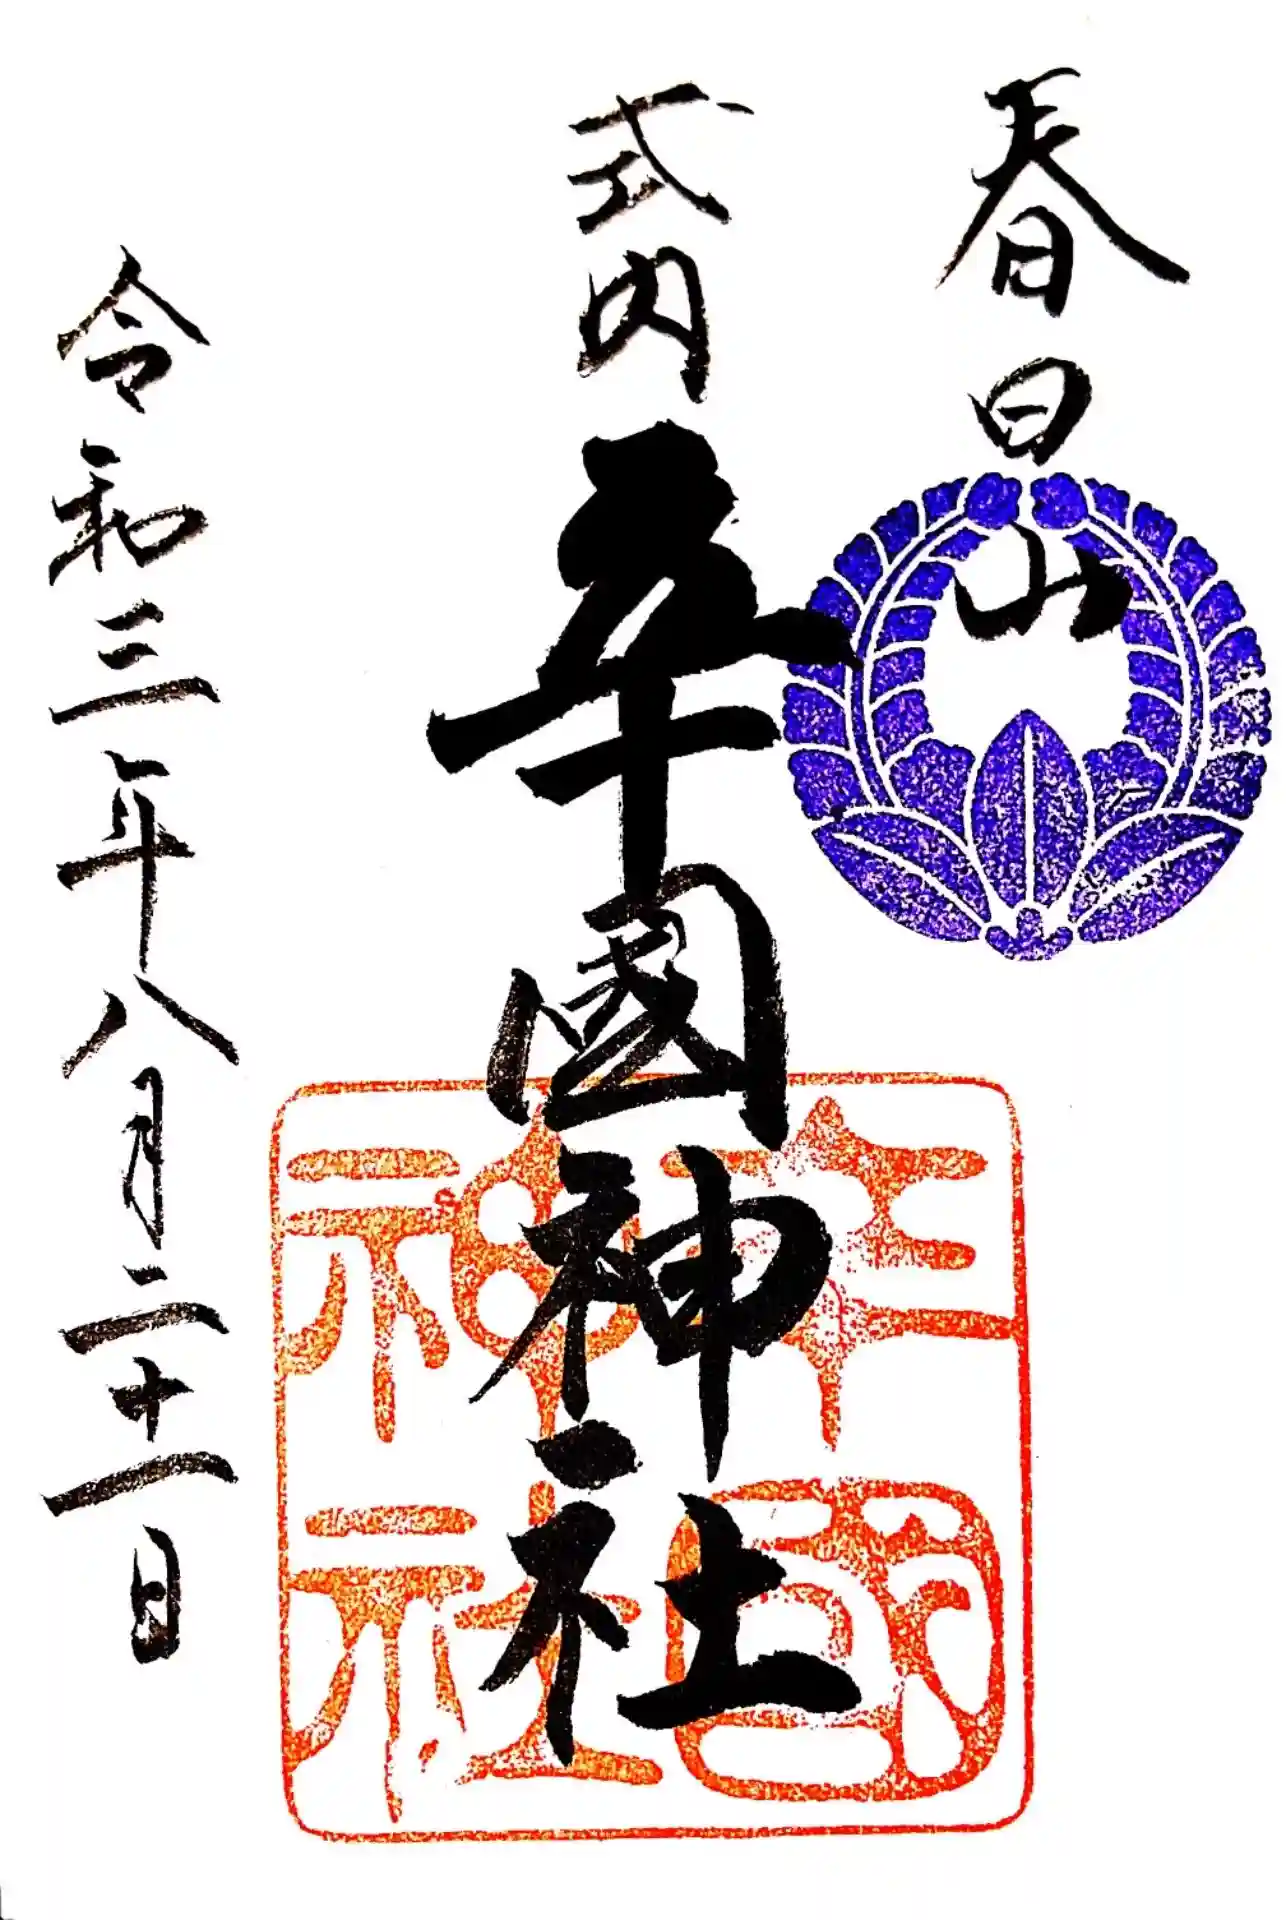 春日山
式内 辛國神社
令和三年八月二十一日
辛國神社